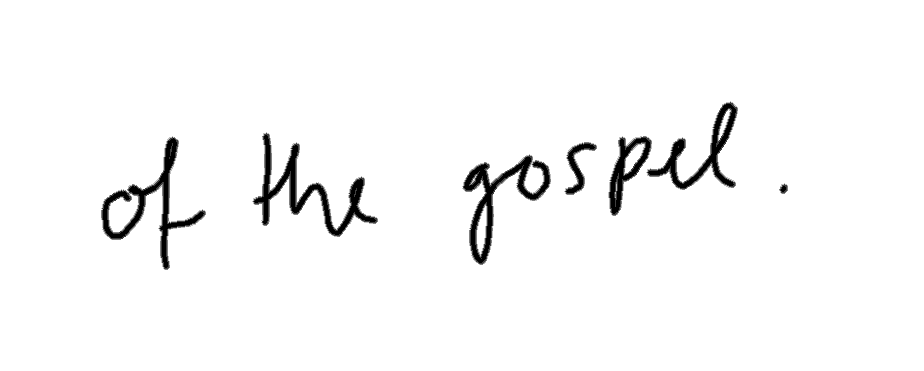 of the gospel.